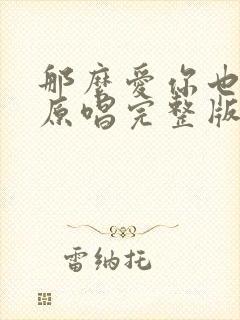 那麼愛你也
原唱完整版
雷纳托